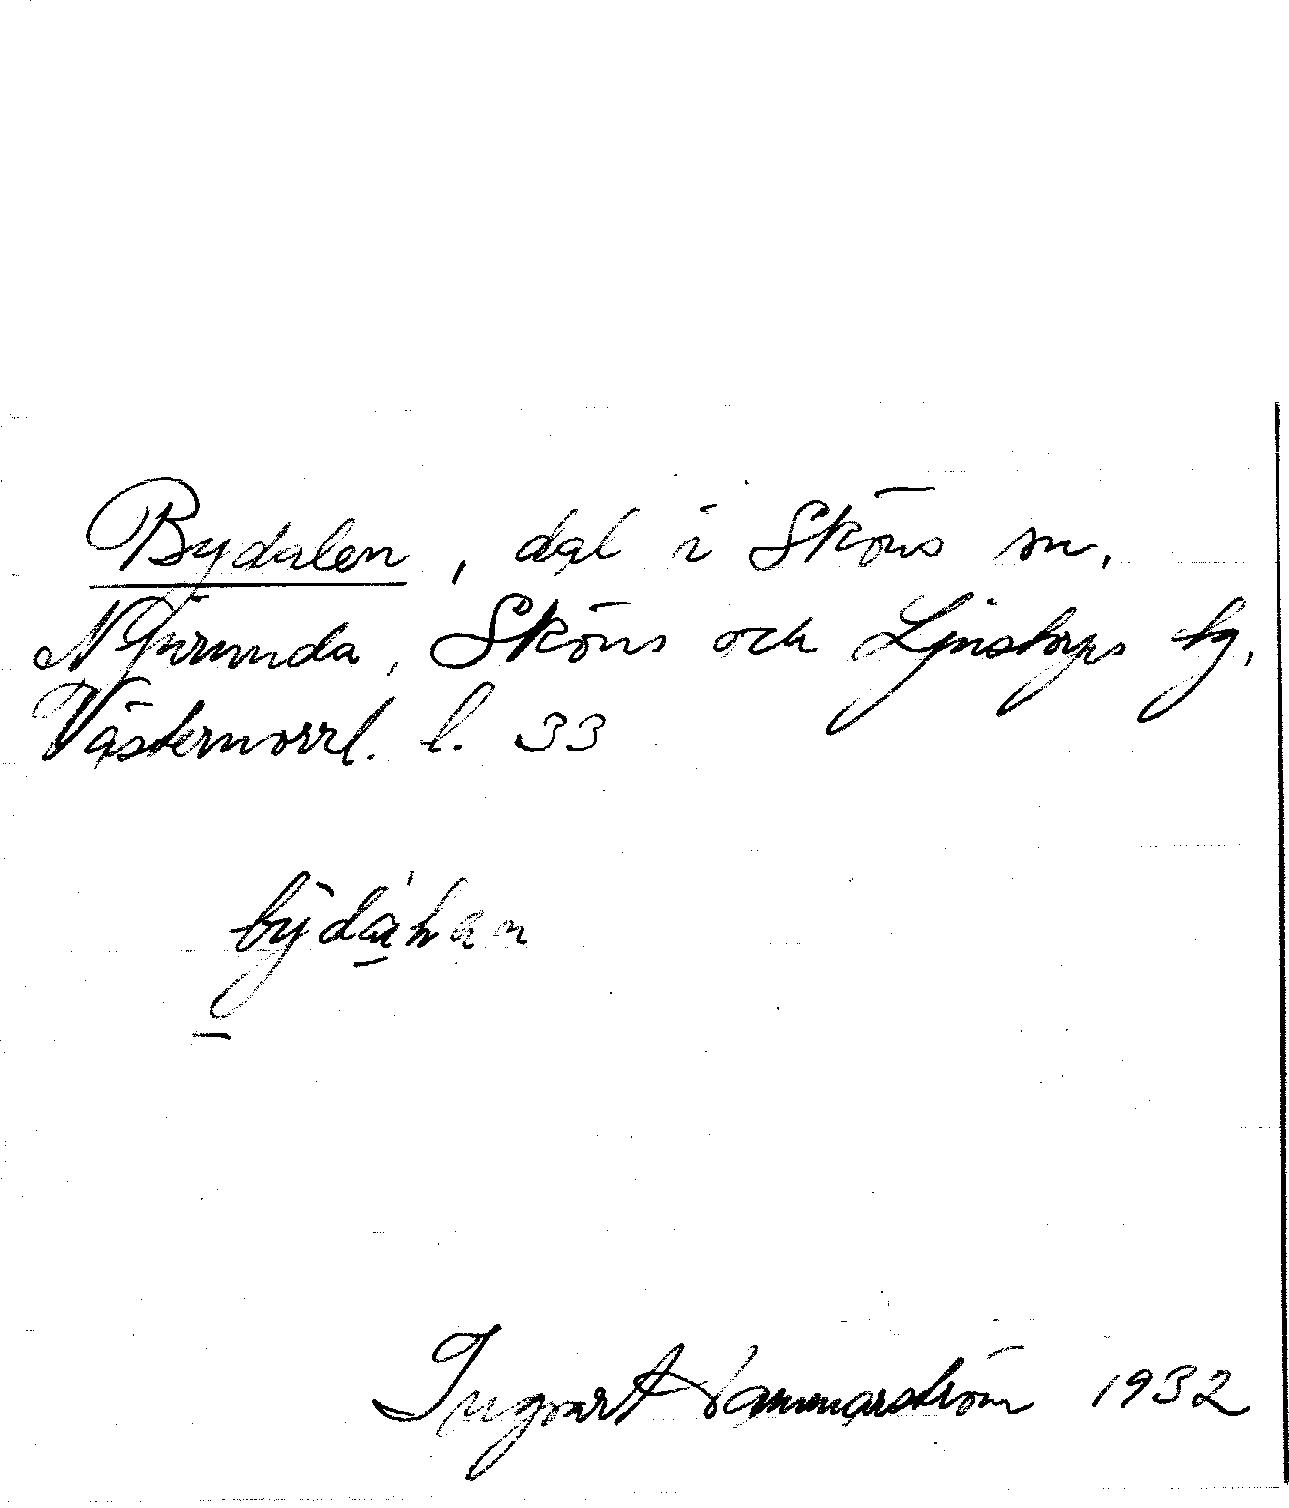 Bydalen, dal i Sköns sn,
Njurunda, Sköns och Ljustorps tg,
Västernorrl. l. 33
Ingvart Hammarström 1932